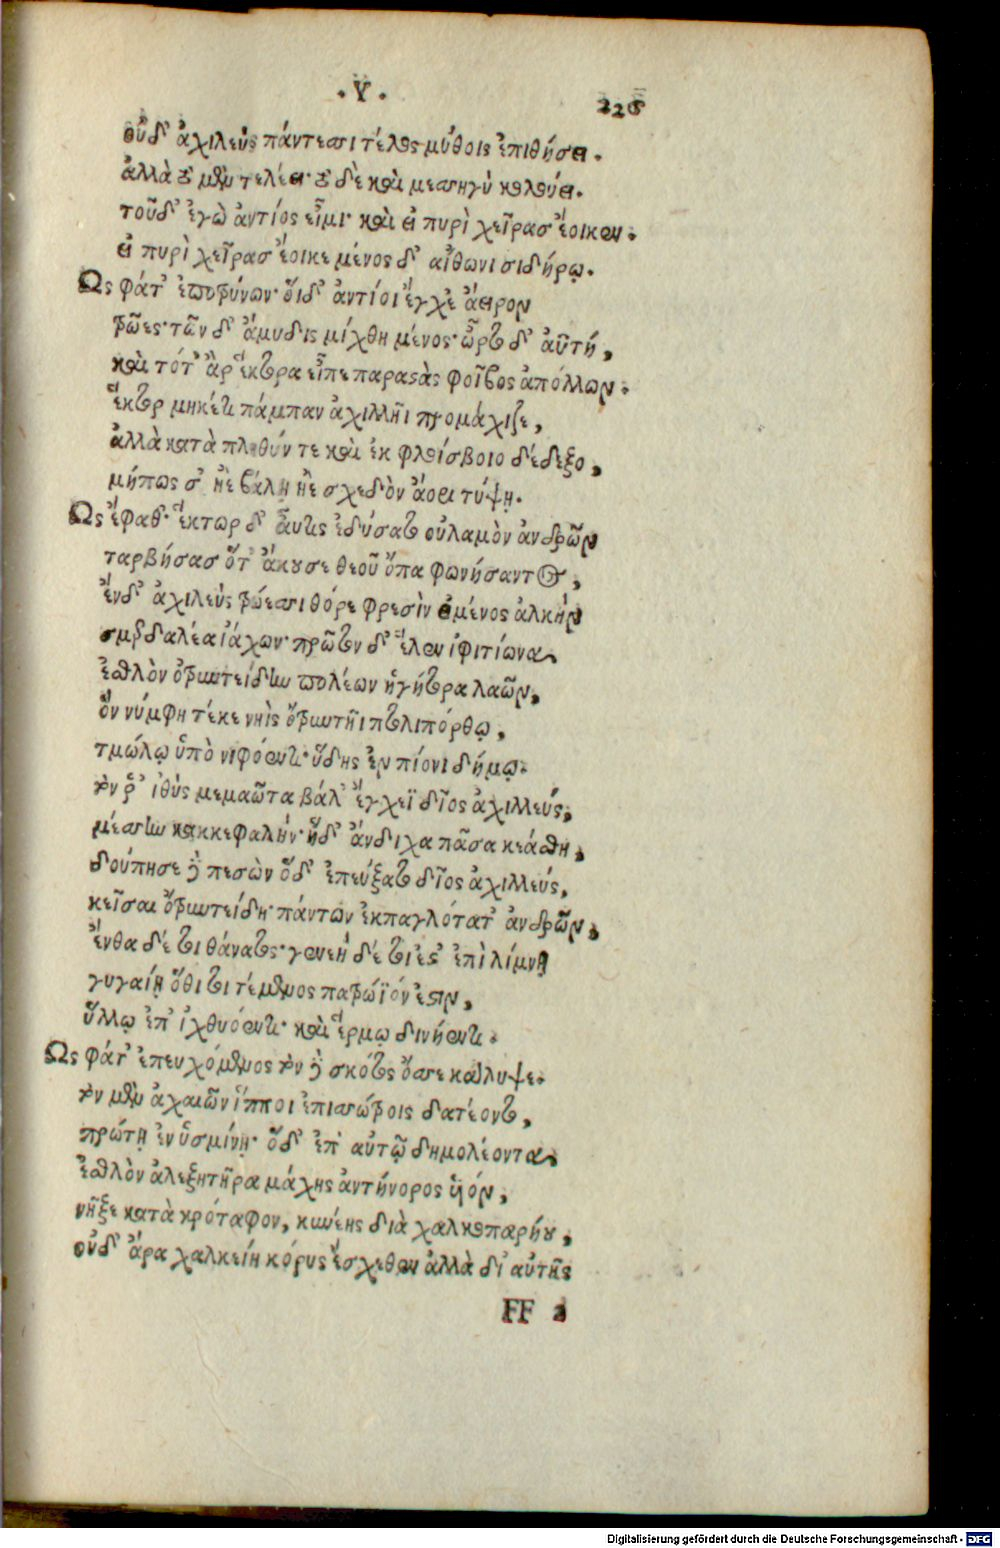 .Υ.
226
οὐδ' ἀχιλεὺς πάντεσσι τέλος μύθοις ἐπιθήσει.
ἀλλὰ τὸ μὲν τελέει· τὸ δὲ καὶ μεσσηγὺ κολούει.
τοῦδ' ἐγὼ ἀντίος εἶμι· καὶ εἰ πυρὶ χεῖρας ἔοικεν.
εἰ πυρὶ χεῖρας ἔοικε μένος δ' αἴθωνι σιδήρῳ.
Ως φάτ' ἐποτρύνων· οἵδ' ἀντίοι ἔγχε' ἄειρον
τρῶες· τῶν δ' ἄμυδις μίχθη μένος· ὦρτο δ' ἀϋτή,
καὶ τότ' ἂρ ἕκτορα εἶπε παραστὰς φοῖβος ἀπόλλων.
ἕκτορ μηκέτι πάμπαν ἀχιλλῆϊ προμάχιζε,
ἀλλὰ κατὰ πληθύν τε καὶ ἐκ φλοίσβοιο δέδεξο,
μήπως σ' ἠὲ βάλῃ ἠὲ σχεδὸν ἄορι τύψῃ.
Ως ἔφαθ'· ἕκτωρ δ' αὖτις ἐδύσατο οὐλαμὸν ἀνδρῶν
ταρβήσας ὅτ' ἄκουσε θεοῦ ὄπα φωνήσαντος,
ἔνδ' ἀχιλεὺς τρώεσσι θόρε φρεσὶν εἱμένος ἀλκὴν
σμερδαλέα ἰάχων· πρῶτον δ' ἕλεν ἰφιτίωνα
ἐσθλὸν ὀτρυντείδην πολέων ἡγήτορα λαῶν,
ὃν νύμφη τέκε νηῒς ὀτρυντῆϊ πτολιπόρθῳ,
τμώλῳ ὑπὸ νιφόεντι· ὕδης ἐν πίονι δήμῳ.
τὸν ῥ' ἰθὺς μεμαῶτα βάλ' ἔγχεϊ δῖος ἀχιλλεύς,
μέσσην κακκεφαλήν· ἡδ' ἄνδιχα πᾶσα κεάσθη,
δούπησε δὲ πεσὼν ὅδ' ἐπεύξατο δῖος ἀχιλλεύς,
κεῖσαι ὀτρυντείδη· πάντων ἐκπαγλότατ' ἀνδρῶν,
ἔνθα δέ τοι θάνατος· γενεὴ δέ τοι ἐστ' ἐπὶ λίμνῃ
γυγαίῃ ὅθι τοι τέμενος πατρώϊόν ἐστιν,
ὕλλῳ ἐπ' ἰχθυόεντι· καὶ ἕρμῳ δινήεντι.
Ως φάτ' ἐπευχόμενος τὸν δὲ σκότος ὄσσε κάλυψε.
τὸν μὲν ἀχαιῶν ἵπποι ἐπισσώτροις δατέοντο,
πρώτῃ ἐν ὑσμίνῃ· ὅδ' ἐπ' αὐτῷ δημολέοντα
ἐσθλὸν ἀλεξητῆρα μάχης ἀντήνορος υἱόν,
νῆξε κατὰ κρόταφον, κυνέης διὰ χαλκοπαρήου,
οὐδ' ἄρα χαλκείη κόρυς ἔσχεθεν ἀλλὰ δι' αὐτῆς
FF 2
Digitalisierung gefördert durch die Deutsche Forschungsgemeinschaft - DFG